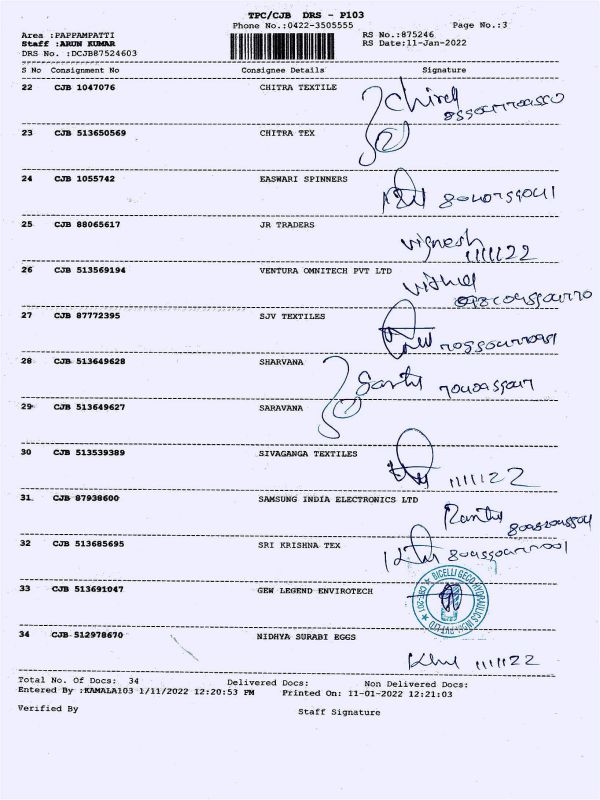 TPC/CJB DRS - P103
Phone No.:0422-3505555 Page No.:3
Area :PAPPAMPATTI RS No.:875246
Staff :ARUN KUMAR RS Date:11-Jan-2022
DRS No. :DCJB87524603
S No Consignment No Consignee Details Signature
22 CJB 1047076 CHITRA TEXTILE
23 CJB 513650569 CHITRA TEX
24 CJB 1055742 EASWARI SPINNERS
25 CJB 88065617 JR TRADERS
vignesh
111122
26 CJB 513569194 VENTURA OMNITECH PVT LTD
27 CJB 87772395 SJV TEXTILES
28 CJB 513649628 SHARVANA
29 CJB 513649627 SARAVANA
30 CJB 513539389 SIVAGANGA TEXTILES
111122
31 CJB 87938600 SAMSUNG INDIA ELECTRONICS LTD
32 CJB 513685695 SRI KRISHNA TEX
33 CJB 513691047 GEW LEGEND ENVIROTECH
34 CJB 512978670 NIDHYA SURABI EGGS
111122
Total No. Of Docs: 34 Delivered Docs: Non Delivered Docs:
Entered By :KAMALA103 1/11/2022 12:20:53 PM Printed On: 11-01-2022 12:21:03
Verified By Staff Signature